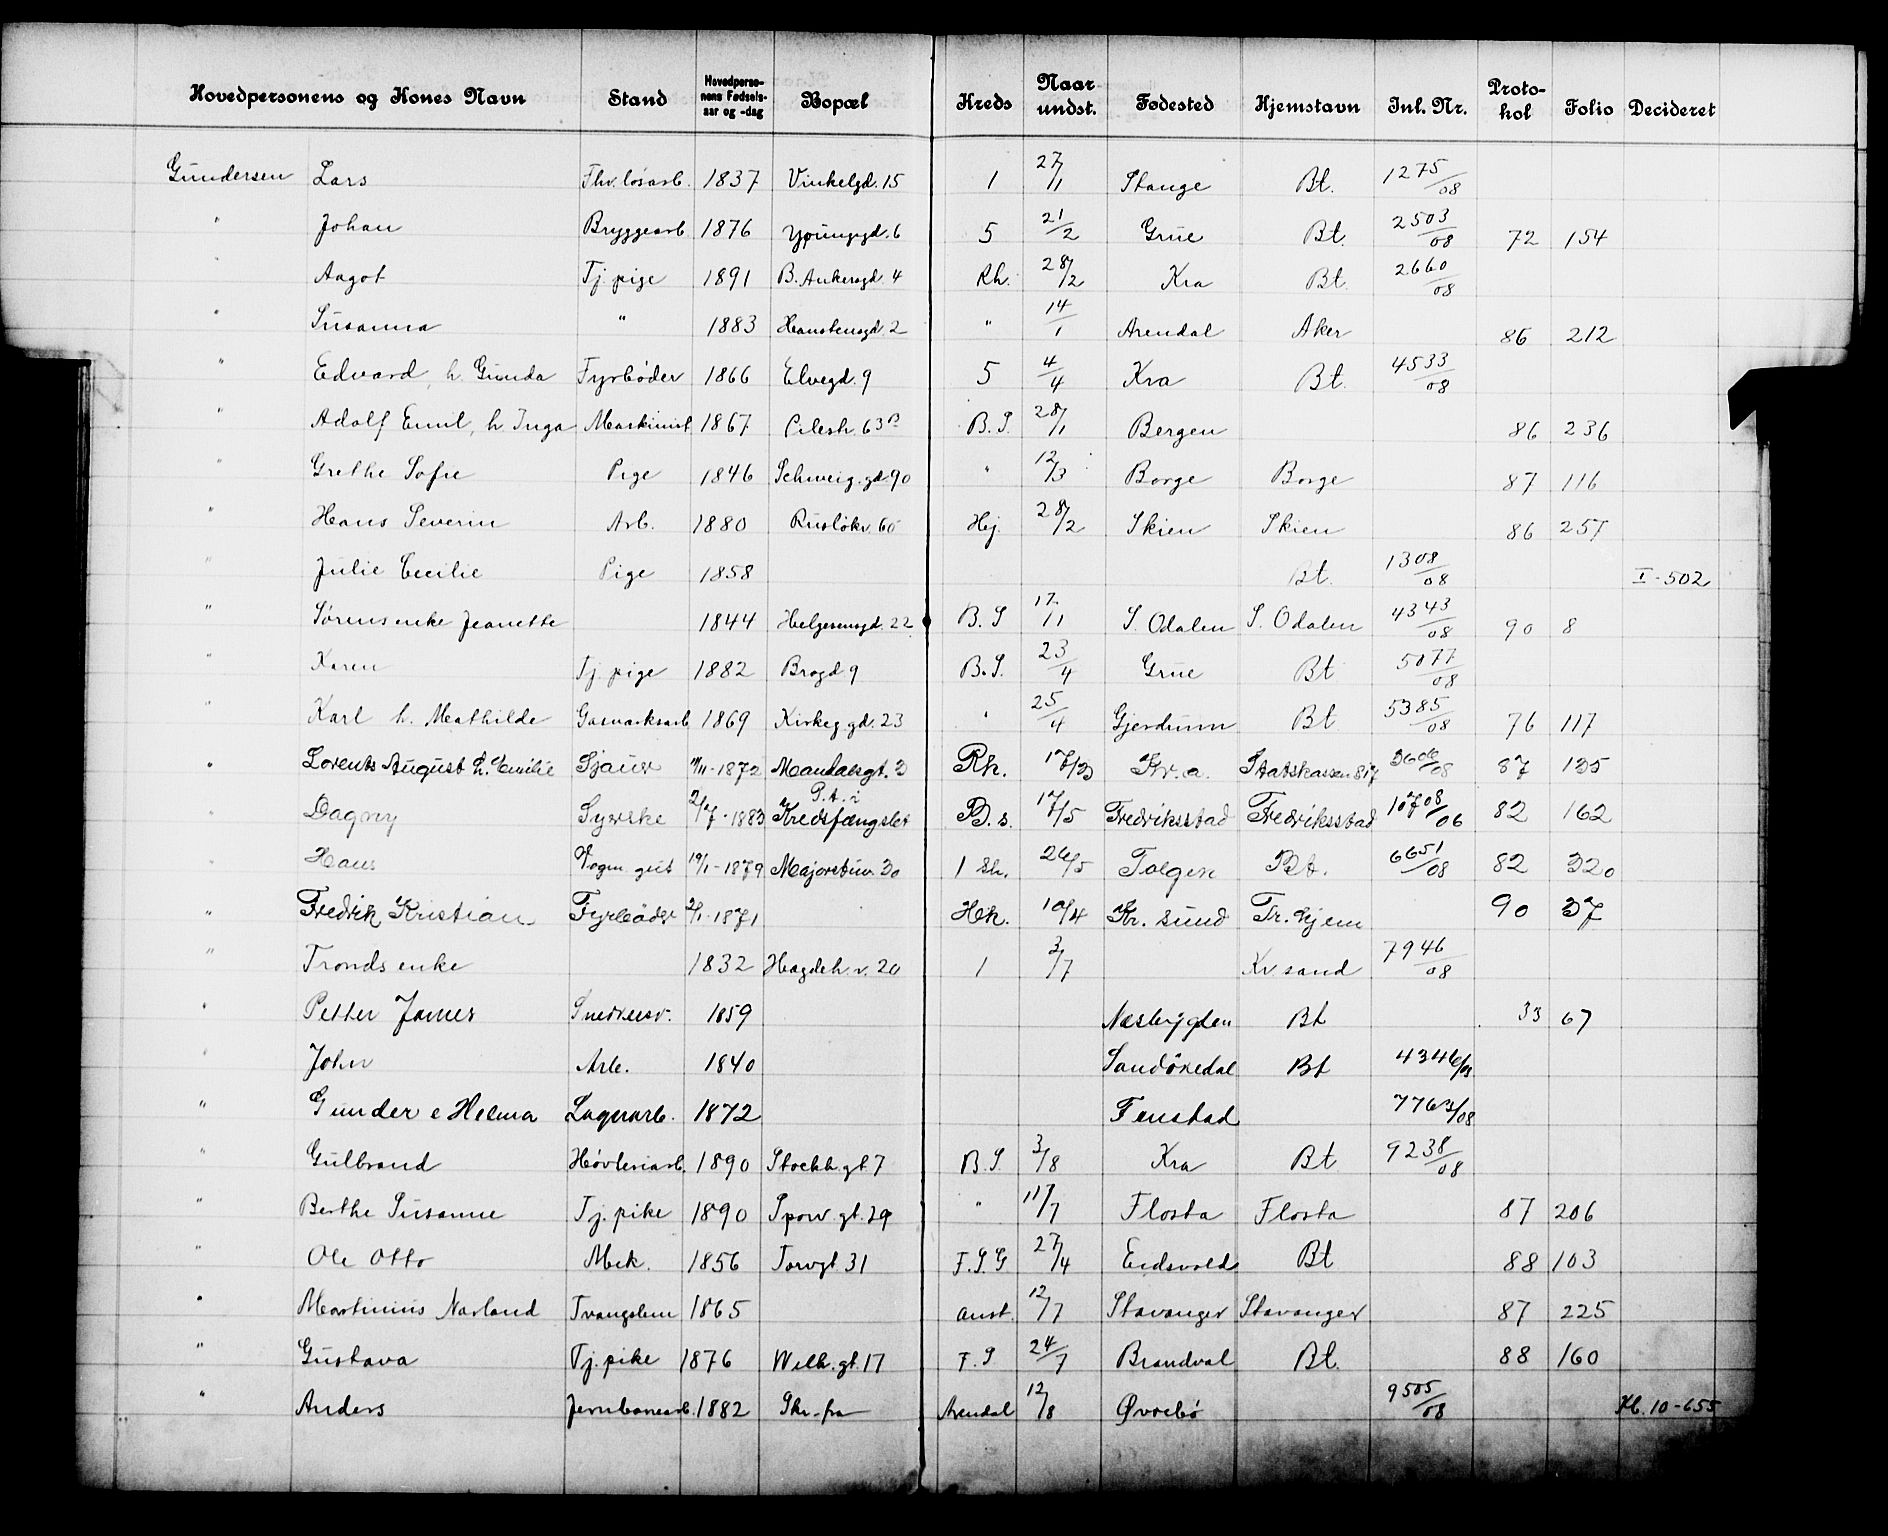 Hovedpersonens og Kones Navn Stand Hovedpersonens Fødselsaar og -dag Bopæl Kreds Naar undst. Fødested Hjemstavn Inl. Nr. Protokol Folio Decideret
Gundersen Lars Fhv. løsarb. 1837 Vinkelgd. 15 1 27/1 Stange Bt. 1275/08
" Johan Bryggearb 1876 Youngsgd. 6 5 21/2 Grue Bt. 2503/08 72 154
" Aagot Tj. pige 1891 B. Ankersgd. 4 Rh. 28/2 Kra Bt. 2660/08
" Susanna " 1883 Hanstensgd. 2 " 14/1 Arendal Aker 86 212
" Edvard, h. Gunda Fyrbøder 1866 Elvegd. 9 5 4/4 Kra Bt. 4533/08
" Adolf Emil, h. Inga Maskinist 1867 Pilestr. 63 B B. S. 28/1 Bergen 86 236
" Grethe Sofie Pige 1846 Schweig. gd. 90 " 12/3 Borge Borge 87 116
" Hans Severin Arb. 1880 Rusløkv. 60 Hej. 28/2 Skien Skien 86 257
" Julie Cecilie Pige 1858 Bt. 1308/08 I-502
" Sørens enke Jeanette 1844 Helgesensgd. 22 B. S 17/1 S. Odalen S. Odalen 4343/08 90 8
" Karen Tj. pige 1882 Brogd 9 B. S. 23/4 Grue Bt 5077/08
" Karl h. Mathilde Gasverksarb 1869 Kirkeg. gd. 23 " 25/4 Gjerdrum Bt 5385/08 76 117
" Lorents August h. Emilie Sjauer 1872 Mandalsgt. 3 Rh. 17/3 Kr.a. Statskassen 817 3606/08 87 135
" Dagny Syerske 2/7-1883 P.t. i Kredsfængslet B. s. 17/5 Fredriksstad Fredriksstad 10708/06 82 162
" Hans Vogm. gut 19/1-1879 Majorstuv. 30 1 Sk. 26/5 Tolgen Bt. 6651/08 82 320
" Fredrik Kristian Fyrbøder 2/1-1871 Hek. 10/4 Kr. sund Tr. hjem 90 37
" Tronds enke 1832 Hægdeh. v. 20 1 3/7 Kr sand 7946/08
" Petter James Snedkersv. 1859 Næsbygden Bt 33 67
" John Arb. 1840 Sandøkedal Bt 4346/08
" Gunder e Helma Lagerarb. 1872 Fenstad 7763/08
" Gulbrand Høvleriarb. 1890 Stockh. gt. 7 B. S. 3/8 Kra Bt 9238/08
" Berthe Susanne Tj. pike 1890 Sporv. gt. 29 " 11/7 Flosta Flosta 87 206
" Ole Otto Mek. 1856 Torvgt. 31 F. S. G 27/4 Eidsvold Bt 88 103
" Martinius Narland Tvangslem 1865 anst. 12/7 Stavanger Stavanger 87 225
" Gustava Tj. pike 1876 Welh. gt. 17 F. S 24/7 Brandval Bt. 88 160
" Anders Jernbanearb. 1882 Skr. fra Arendal 12/8 Øvrebø 9505/08 Kl. 10-655